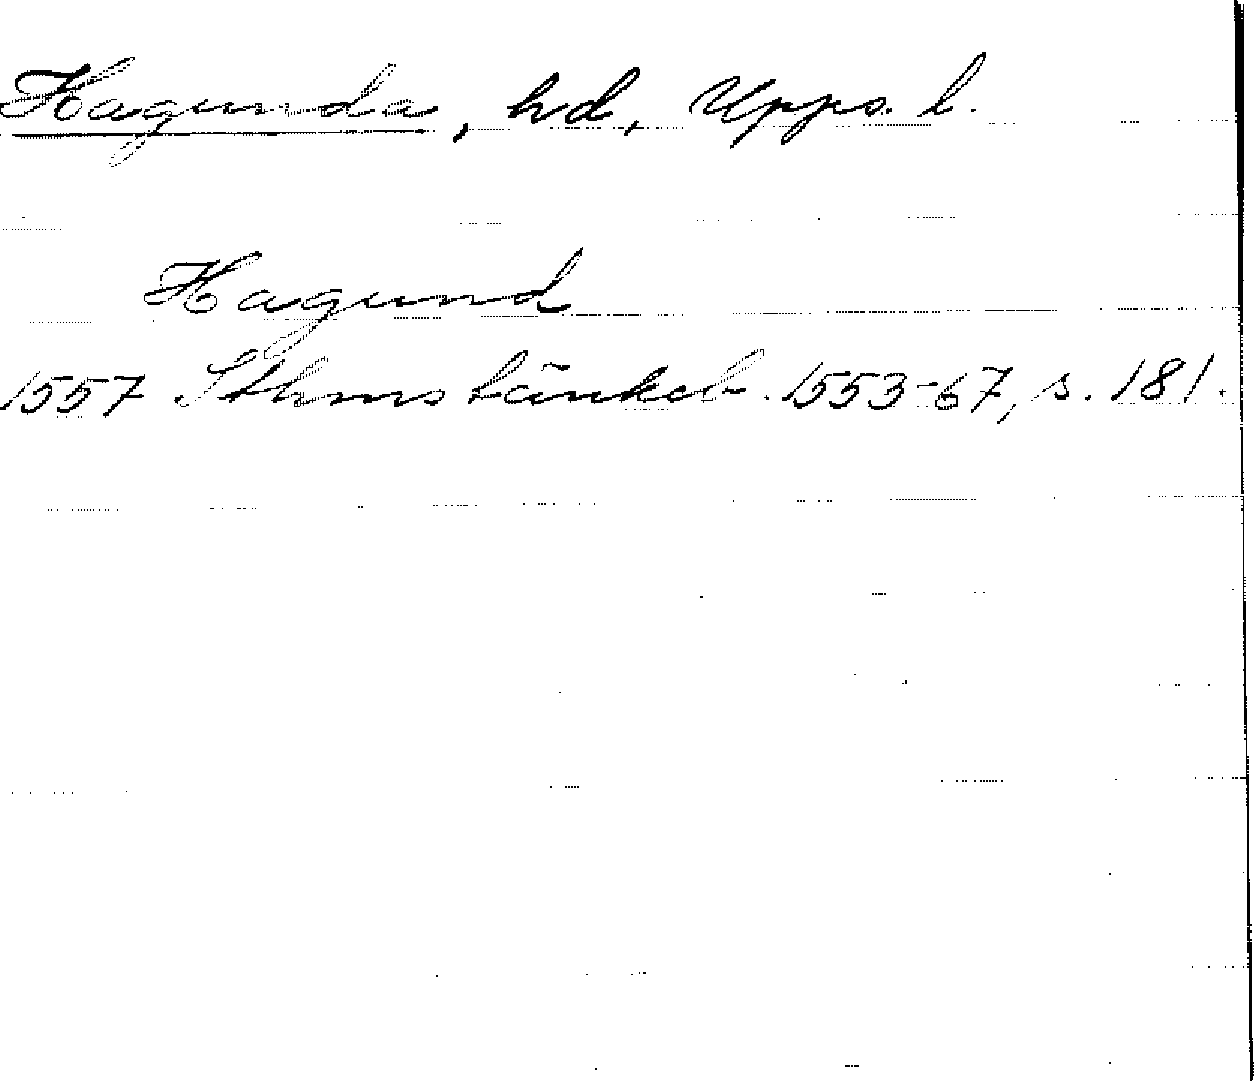 Hagunda, hd, Upps. l.
Hagund
1557 Sthms tänkeb. 1553-67, s. 181.